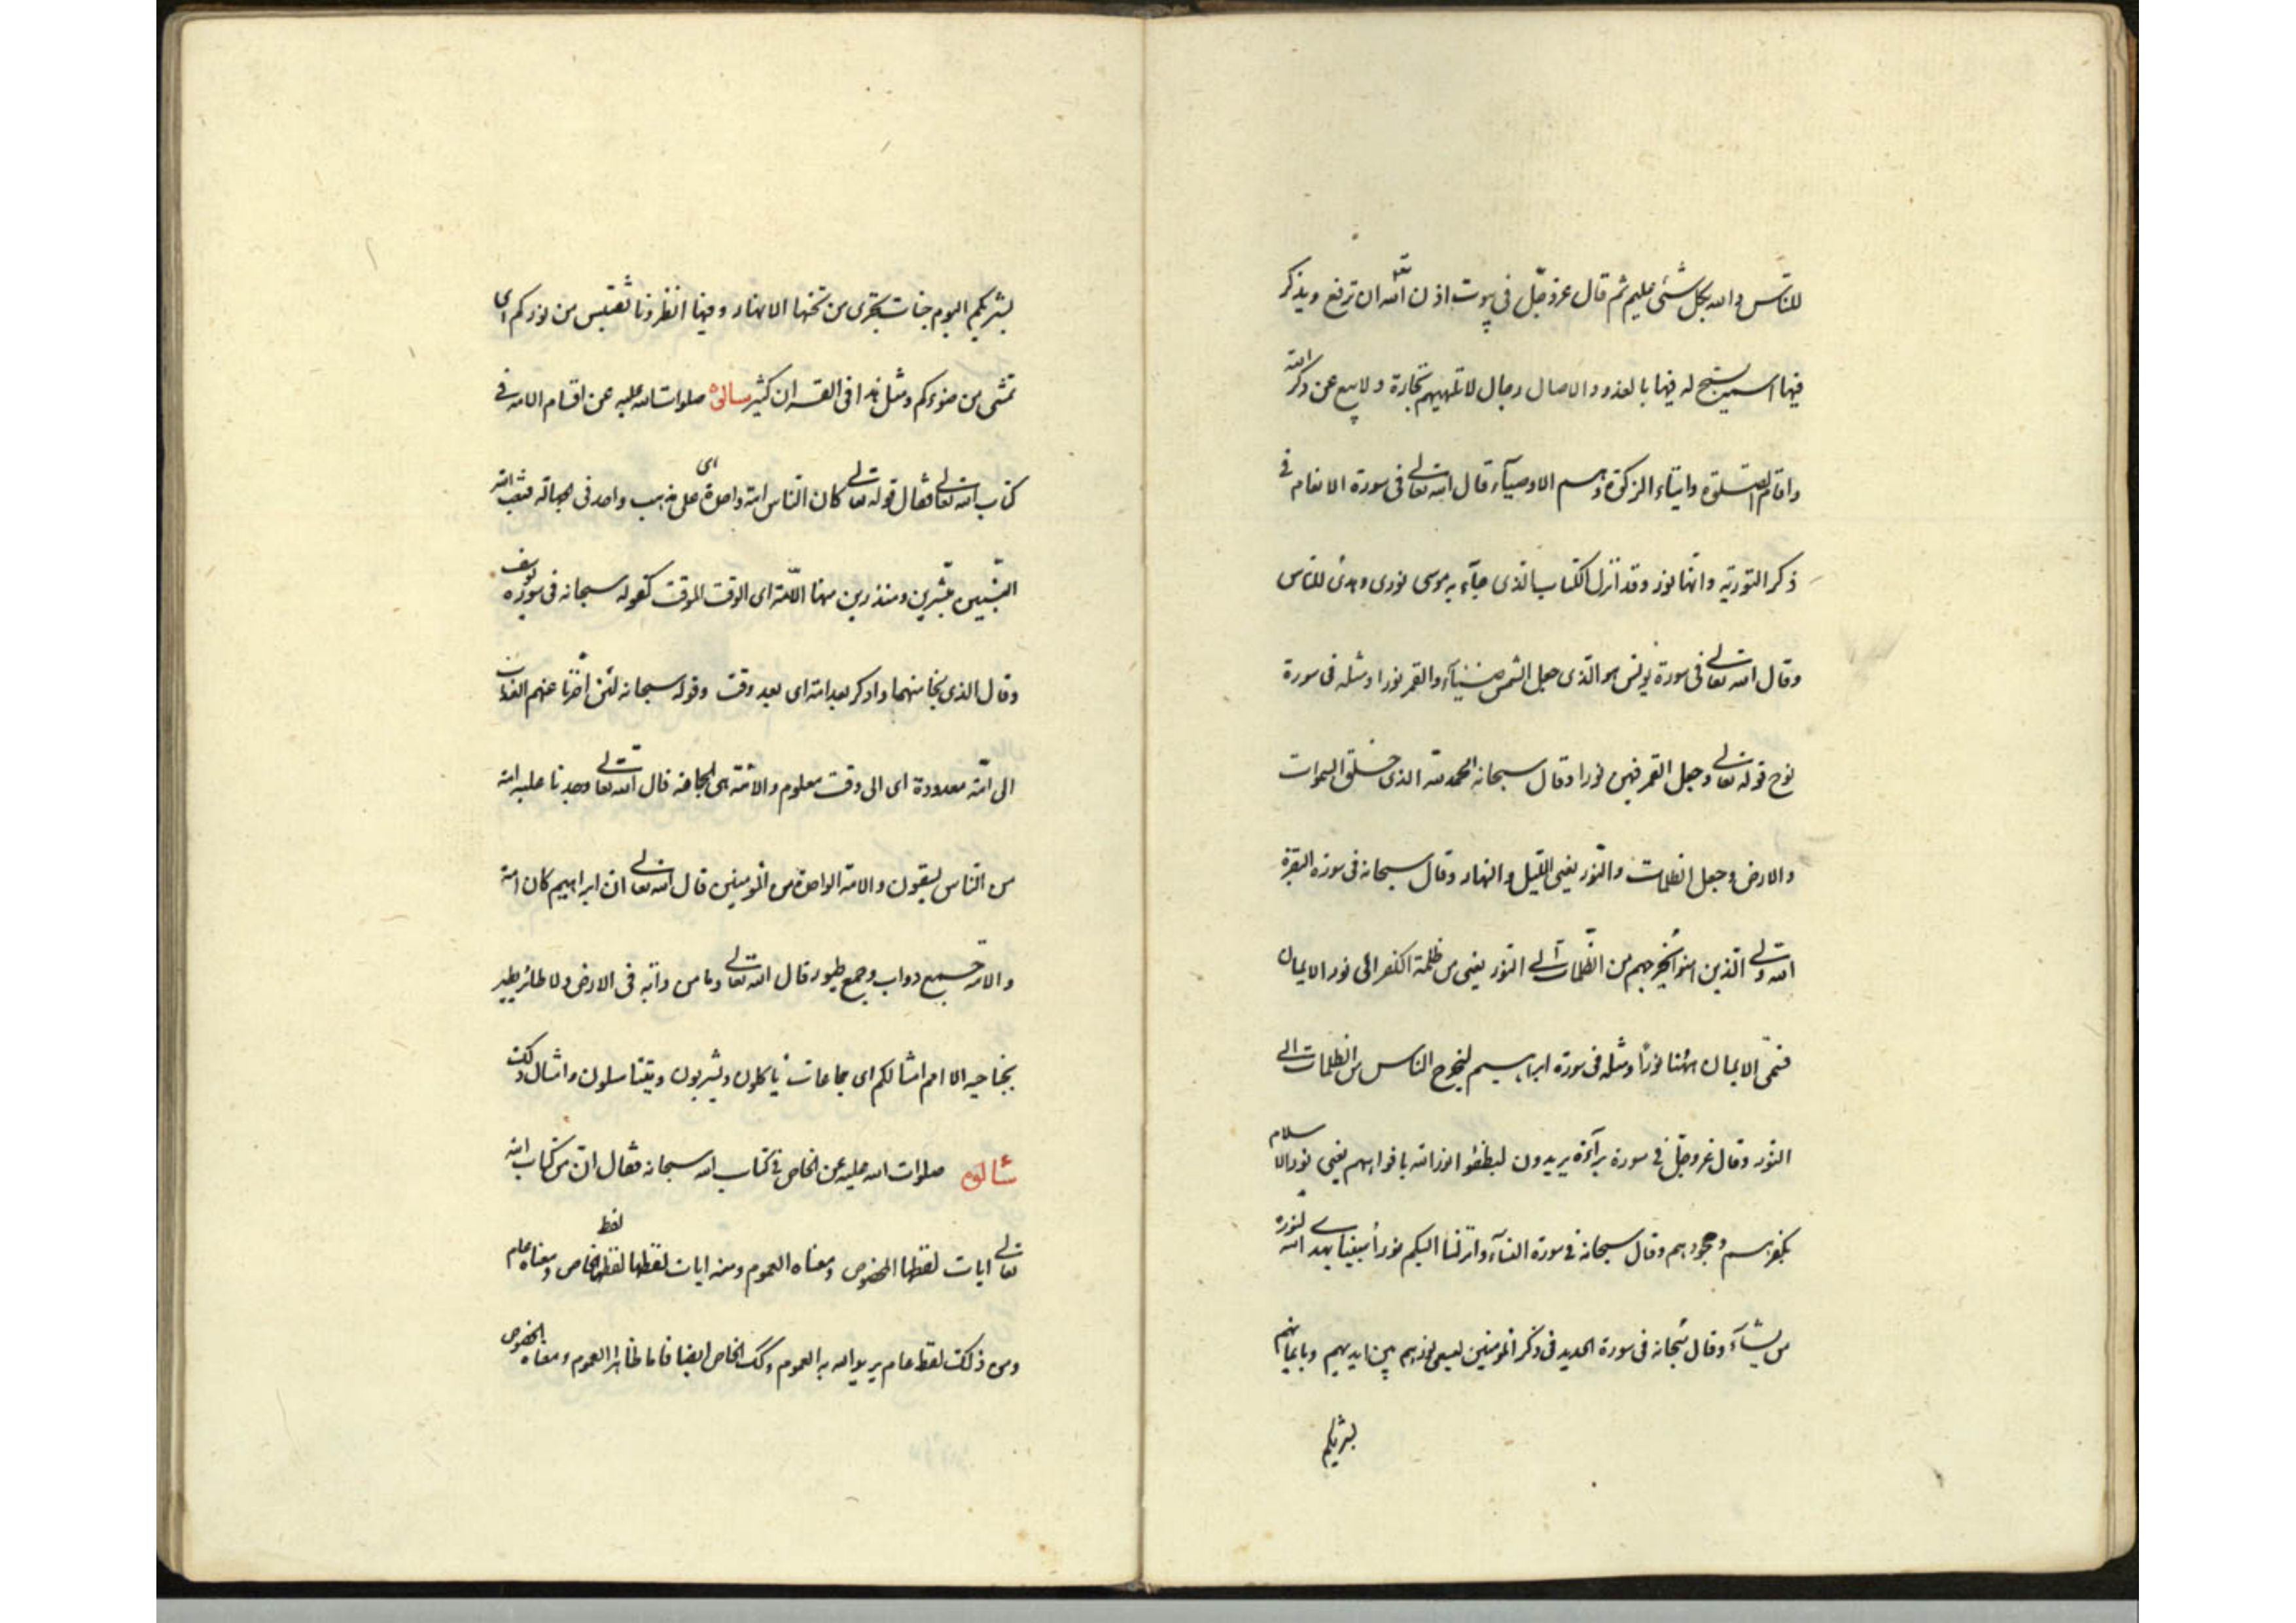 للناس والله بكل شئ عليم ثم قال عز وجل فى بيوت اذن الله ان ترفع ويذكر
فيها اسمه يسبح له فيها بالغدو والاصال رجال لا تلهيهم تجارة ولا بيع عن ذكر الله
واقام الصلوة وايتاء الزكوة وهم الاوصيآء قال الله تعالى فى سورة الانعام فى
ذكر التورية وانها نور وقد انزل الكتاب الذى جآء به موسى نورى وهدى للناس
وقال الله تعالى فى سورة يونس هو الذى جعل الشمس ضيآء والقمر نورا ومثله فى سورة
نوح قوله تعالى وجعل القمر فيهن نورا وقال سبحانه الحمد لله الذى خلق السموات
والارض وجعل الظلمات والنور يعنى الليل والنهار وقال سبحانه فى سورة البقرة
الله ولى الذين امنوا يخرجهم من الظلمات الى النور يعنى من ظلمة الكفر الى نور الايمان
فسمى الايمان ههنا نورًا ومثله فى سورة ابراهيم ليخرج الناس من الظلمات الى
النور وقال عز وجل فى سورة برآءة يريدون ليطفؤا نور الله بافواههم يعنى نور الاسلام
بكفرهم وجحودهم وقال سبحانه فى سورة النسآء وانزلنا اليكم نورا مبينا يهد الله لنوره
من يشآء وقال سبحانه فى سورة الحديد فى ذكر المومنين يسعى نورهم بين ايديهم وبايمانهم
بشريكم
بشريكم اليوم جنات تجرى من تحتها الانهار وفيها انظرونا نقتبس من نوركم اى
نمشى من ضوءكم ومثل هذا فى القران كثير سالوه صلوات الله عليه عن اقسام الامة فى
كتاب الله تعالى فقال قوله تعالى كان الناس امة واحدة اى على مذهب واحد فى الجهالة فبعث الله
النبيين مبشرين ومنذرين ومنها الامة اى الوقت الموقت كقوله سبحانه فى سورة يوسف
وقال الذى نجا منهما وادكر بعد امة اى بعد وقت وقوله سبحانه لئن اخرنا عنهم العذاب
الى امة معدودة اى الى وقت معلوم والامة هى الجماعة قال الله تعالى وجد نا عليه امة
من الناس يسقون والامة الواحدة من المومنين قال الله تعالى ان ابراهيم كان امة
والامة جميع دواب وجميع طيور قال الله تعالى وما من دابة فى الارض ولا طائر يطير
بجناحيه الا امم امثالكم اى جماعات ياكلون ويشربون ويتناسلون وامثال ذلك
سألوه صلوات الله عليه عن الخاص فى كتاب الله سبحانه فقال ان من كتاب الله
تعالى ايات لفظها الخصوص ومعناه العموم ومنه ايات لفظها لفظ الخاص ومعناه عام
ومن ذلك لفظ عام يريد الله به العموم وكك الخاص ايضا فاما ظاهرا العموم ومعناه الخصوص